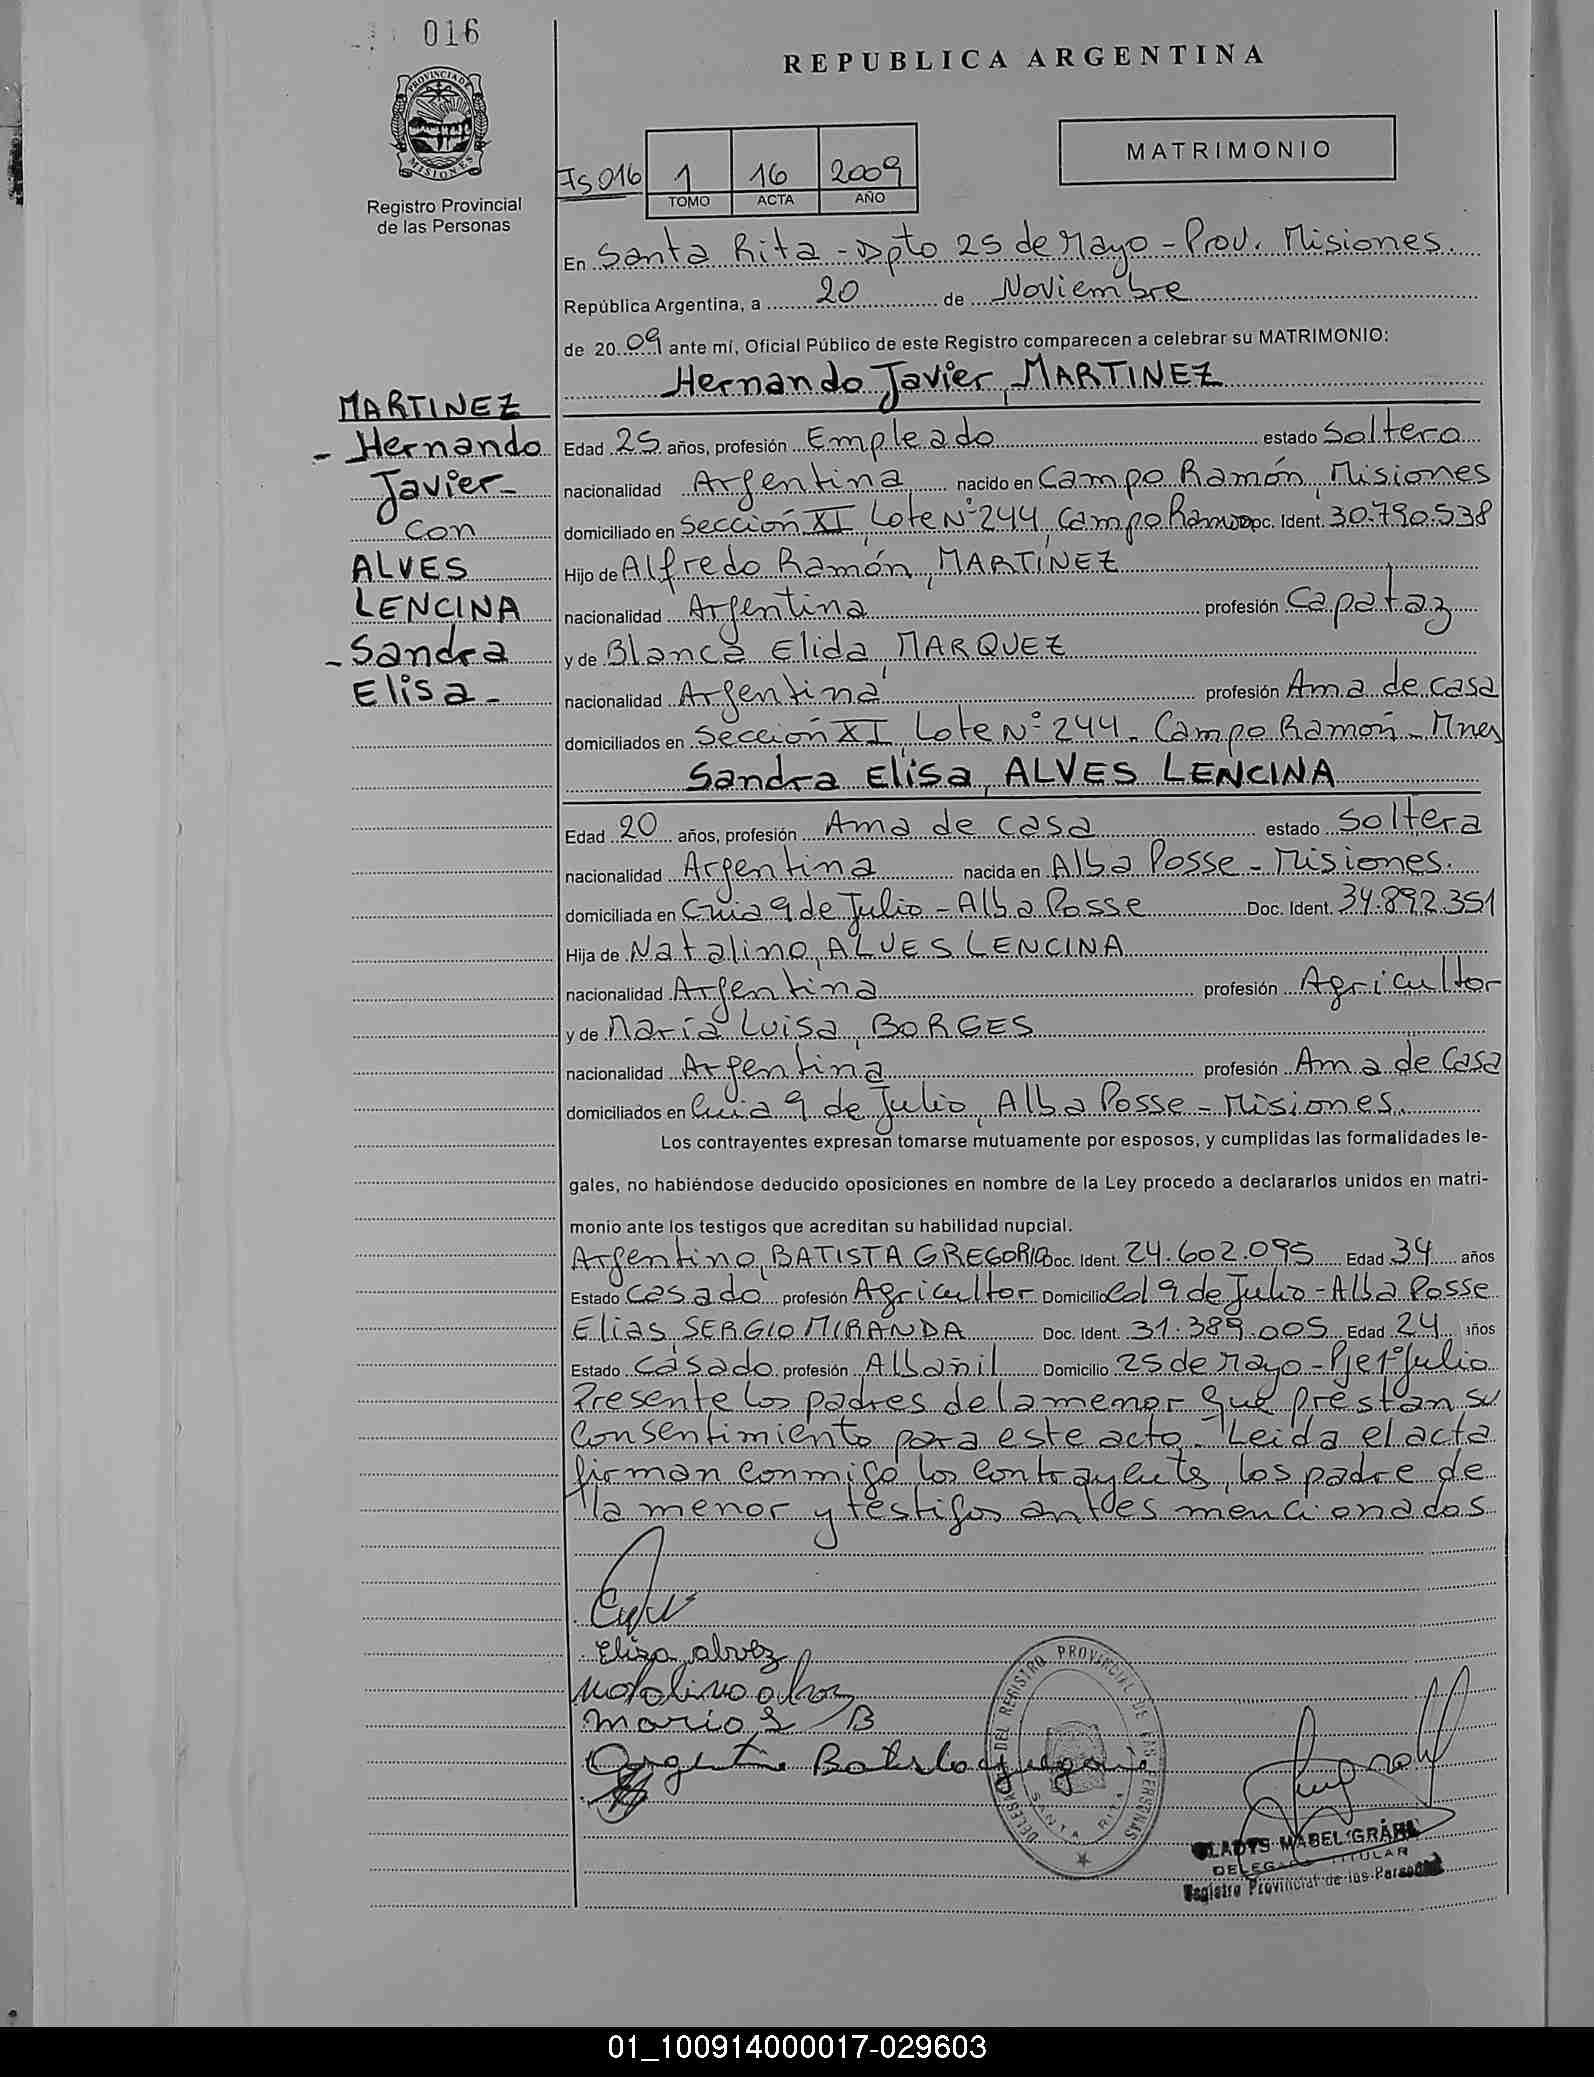 016
PROVINCIA DE
MISIONES
Registro Provincial
de las Personas
REPUBLICA ARGENTINA
MATRIMONIO
Fs 016 1 16 2009
TOMO ACTA AÑO
En Santa Rita - Dpto 25 de Mayo - Prov. Misiones.
República Argentina, a 20 de Noviembre
de 20 09 ante mí, Oficial Público de este Registro comparecen a celebrar su MATRIMONIO:
Hernando Javier, MARTINEZ
MARTINEZ
- Hernando
Javier -
con
ALVES
LENCINA
- Sandra
Elisa -
Edad 25 años, profesión Empleado estado Soltero
nacionalidad Argentina nacido en Campo Ramón, Misiones
domiciliado en Sección XI, Lote Nº 244, Campo Ramon Doc. Ident. 30.790.538
Hijo de Alfredo Ramón, MARTÍNEZ
nacionalidad Argentina profesión Capataz
y de Blanca Elida, MARQUEZ
nacionalidad Argentina profesión Ama de casa
domiciliados en Sección XI, Lote Nº 244 - Campo Ramon - Mnes
Sandra Elisa, ALVES LENCINA
Edad 20 años, profesión Ama de casa estado Soltera
nacionalidad Argentina nacida en Alba Posse - Misiones.
domiciliada en Cnia 9 de Julio - Alba Posse Doc. Ident. 34.892.351
Hija de Natalino, ALVES LENCINA
nacionalidad Argentina profesión Agricultor
y de María Luisa, BORGES
nacionalidad Argentina profesión Ama de Casa
domiciliados en Cnia 9 de Julio, Alba Posse - Misiones.
Los contrayentes expresan tomarse mutuamente por esposos, y cumplidas las formalidades le-
gales, no habiéndose deducido oposiciones en nombre de la Ley procedo a declararlos unidos en matri-
monio ante los testigos que acreditan su habilidad nupcial.
Argentino, BATISTA GREGORIO Doc. Ident. 24.602.095 Edad 34 años
Estado Casado profesión Agricultor Domicilio Col 9 de Julio - Alba Posse
Elias SERGIO MIRANDA Doc. Ident. 31.389.005 Edad 24 años
Estado Casado profesión Albañil Domicilio 25 de Mayo - Pje 1º Julio
Presente los padres de la menor que prestan su
Consentimiento para este acto. Leida el acta
firman conmigo los contrayente, los padre de
la menor y testigos antes mencionados
Eliza alvez
Natalino alvez
Maria L B
Argentino Batista gregorio
DELEGACION DEL REGISTRO PROVINCIAL DE LAS PERSONAS
SANTA RITA
GLADYS MABEL GRAHL
DELEGADO TITULAR
Registro Provincial de las Personas
01_100914000017-029603